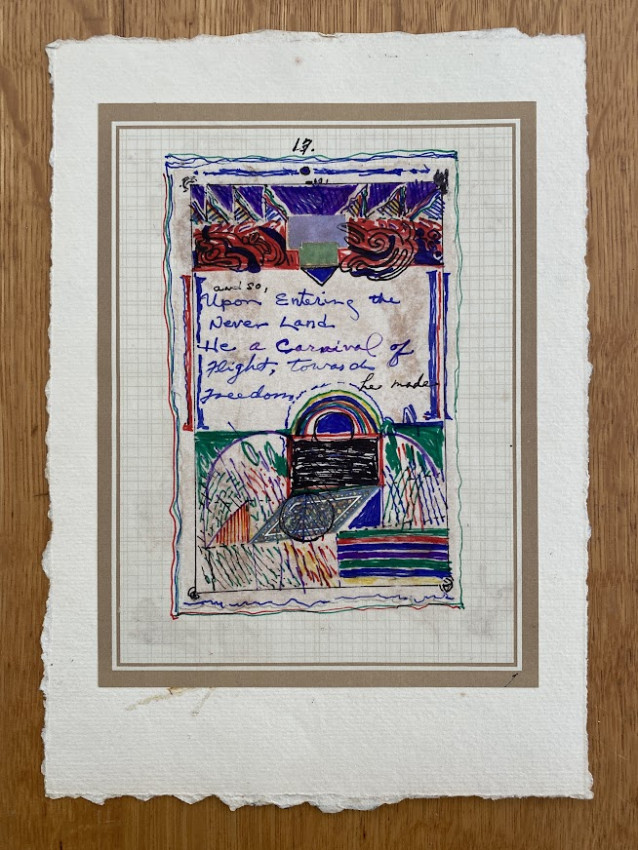 17.
and so,
Upon Entering the
Never Land
He a Carnival of
Flight, Towards
Freedom,
he made